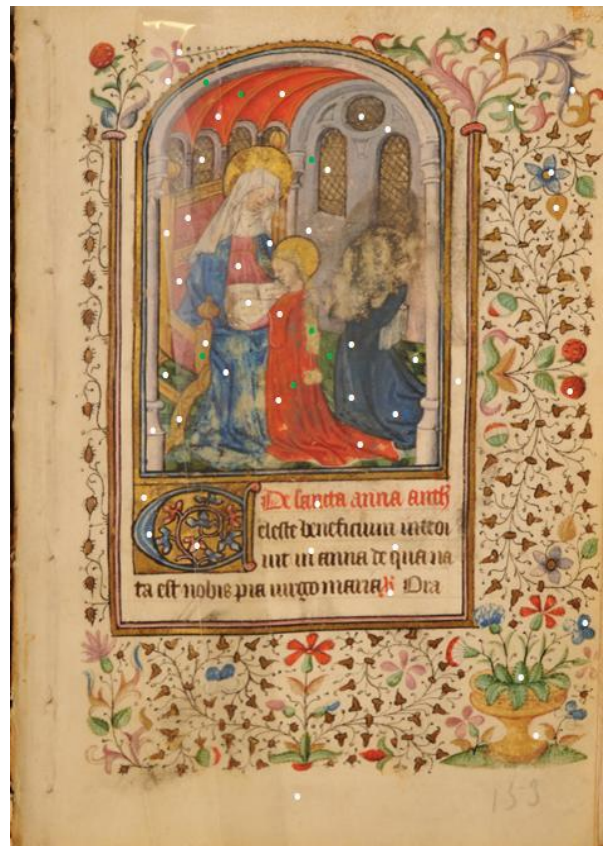 De sancta anna anth
Celeste beneficium introi
uit in anna de qua na
ta est nobis pia uirgo maria Ora
153